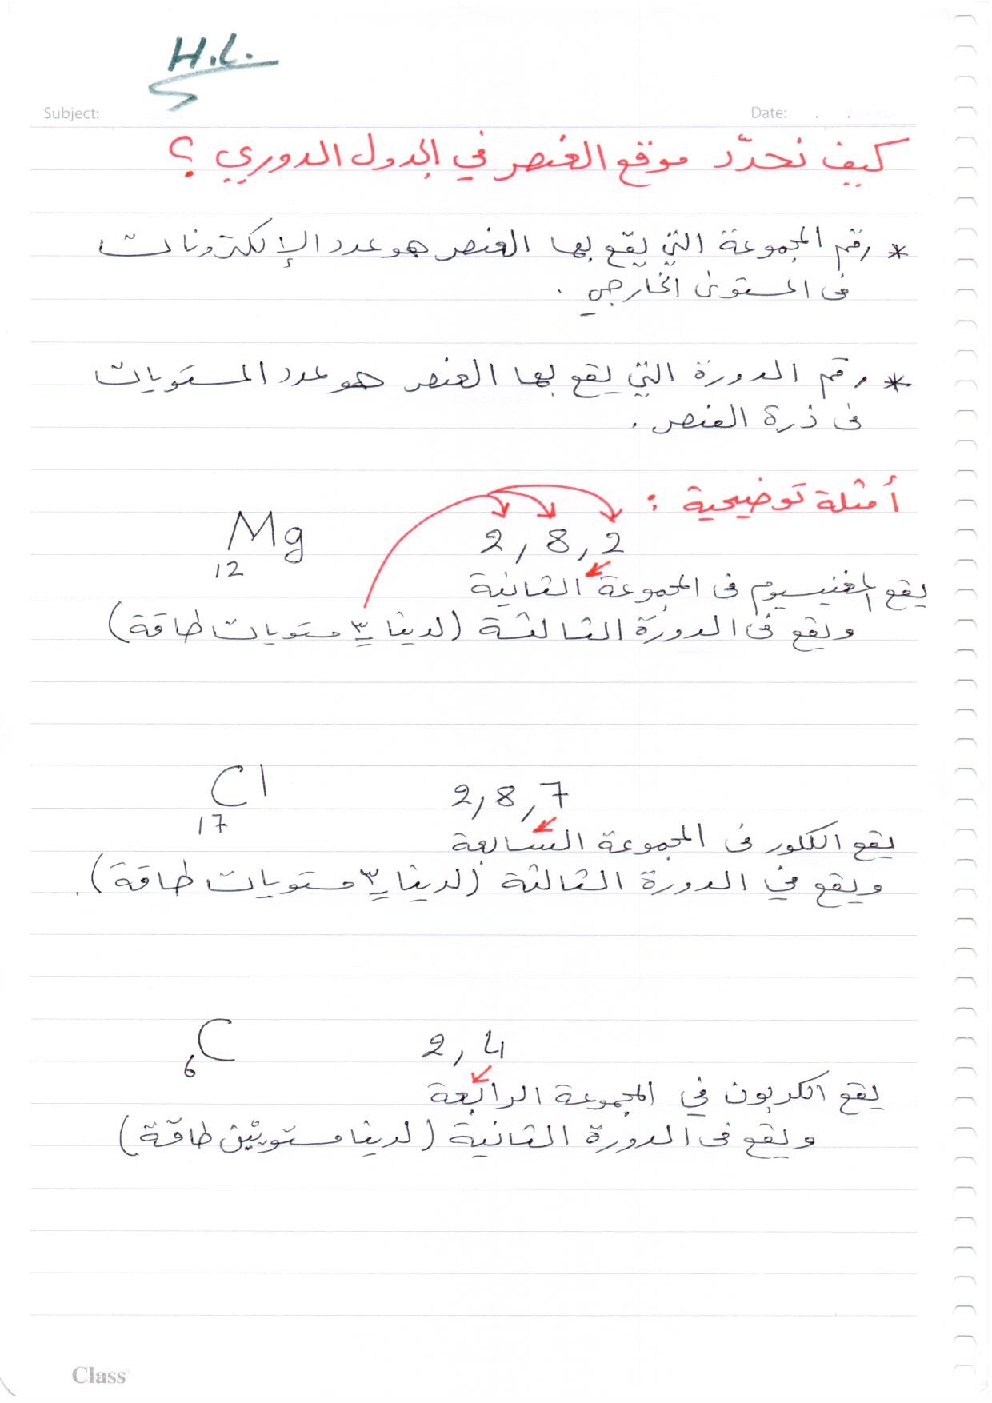 H.L.
Subject:
Date: . .
كيف نحدّد موقع العنصر في الجدول الدوري ؟
* رقم المجموعة التي يقع بها العنصر هو عدد الإلكترونات
في المستوى الخارجي .
* رقم الدورة التي يقع بها العنصر هو عدد المستويات
في ذرة العنصر .
أمثلة توضيحية :
Mg 2 , 8 , 2
12
يقع المغنيسيوم في المجموعة الثانية
ويقع في الدورة الثالثة (لدينا ٣ مستويات طاقة)
Cl 2 , 8 , 7
17
يقع الكلور في المجموعة السابعة
ويقع في الدورة الثالثة (لدينا ٣ مستويات طاقة).
C 2 , 4
6
يقع الكربون في المجموعة الرابعة
ويقع في الدورة الثانية (لدينا مستويين طاقة)
Class